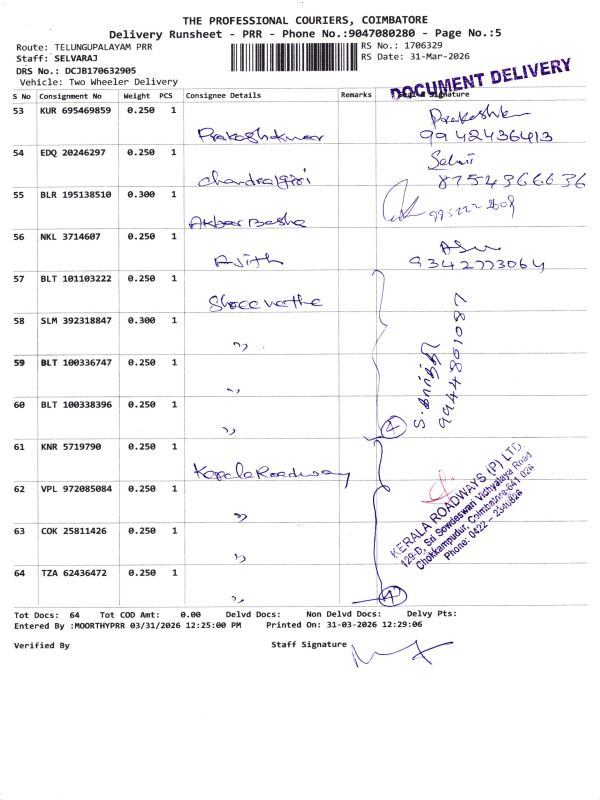 THE PROFESSIONAL COURIERS, COIMBATORE
Delivery Runsheet - PRR - Phone No.:9047080280 - Page No.:5
Route: TELUNGUPALAYAM PRR
Staff: SELVARAJ
DRS No.: DCJB170632905
Vehicle: Two Wheeler Delivery
RS No.: 1706329
RS Date: 31-Mar-2026
DOCUMENT DELIVERY
S No Consignment No Weight PCS Consignee Details Remarks Signature
53 KUR 695469859 0.250 1 Prakashkumar 9942436413
54 EDQ 20246297 0.250 1 Chandragiri Selvi 8754366636
55 BLR 195138510 0.300 1 Akbar Basha
56 NKL 3714607 0.250 1 Ajith 9342773064
57 BLT 101103222 0.250 1
58 SLM 392318847 0.300 1 "
59 BLT 100336747 0.250 1 "
60 BLT 100338396 0.250 1 "
4
9944801087
61 KNR 5719790 0.250 1 Kerala Roadway
62 VPL 972085084 0.250 1 "
63 COK 25811426 0.250 1 "
64 TZA 62436472 0.250 1 "
4
KERALA ROADWAYS (P) LTD
129-D, Sri Sowdeswari Vidhyalaya Road
Chokkampudur, Coimbatore-641 026
Phone: 0422 - 2340826
Tot Docs: 64 Tot COD Amt: 0.00 Delvd Docs: Non Delvd Docs: Delvy Pts:
Entered By :MOORTHYPRR 03/31/2026 12:25:00 PM Printed On: 31-03-2026 12:29:06
Verified By Staff Signature